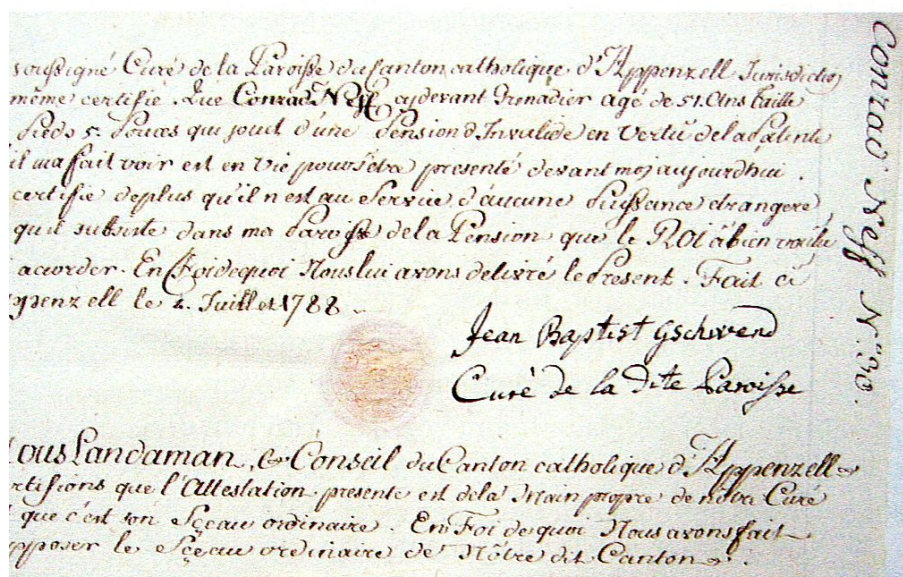 soussigné Curé de la Paroisse du Canton catholique d'Appenzell Jurisdiction
même certifie. Que Conrad Neff cydevant Grenadier agé de 51. Ans Taille
Pieds 5. Pouces qui jouit d'une Pension d'Invalide en vertu de la Patente
il m'a fait voir est en vie pour s'être presenté devant moi aujourdhui.
certifie deplus qu'il n'est au Service d'aucune Puissance etrangere,
qu'il subsiste dans ma Paroisse de la Pension que le ROI a bien voulu
accorder. En Foi dequoi Nous lui avons delivré le Present. Fait ci
ppenzell le 2. Juillet 1788.
Jean Baptist Gschwend
Curé de la dite Paroisse
ous Landaman, & Conseil du Canton catholique d'Appenzell
rtifions que l'Attestation presente est de la Main propre de nôtre Curé
que c'est son Sçeau ordinaire. En Foi de quoi Nous avons fait
pposer le Sçeau ordinaire de Nôtre dit Canton.
Conrad Neff N.° 30.